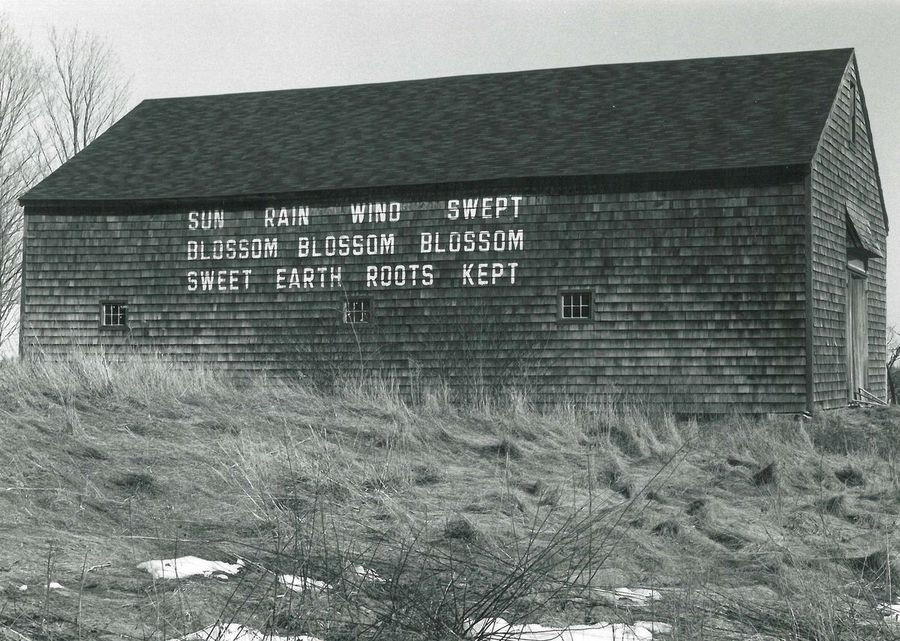 SUN RAIN WIND SWEPT
BLOSSOM BLOSSOM BLOSSOM
SWEET EARTH ROOTS KEPT